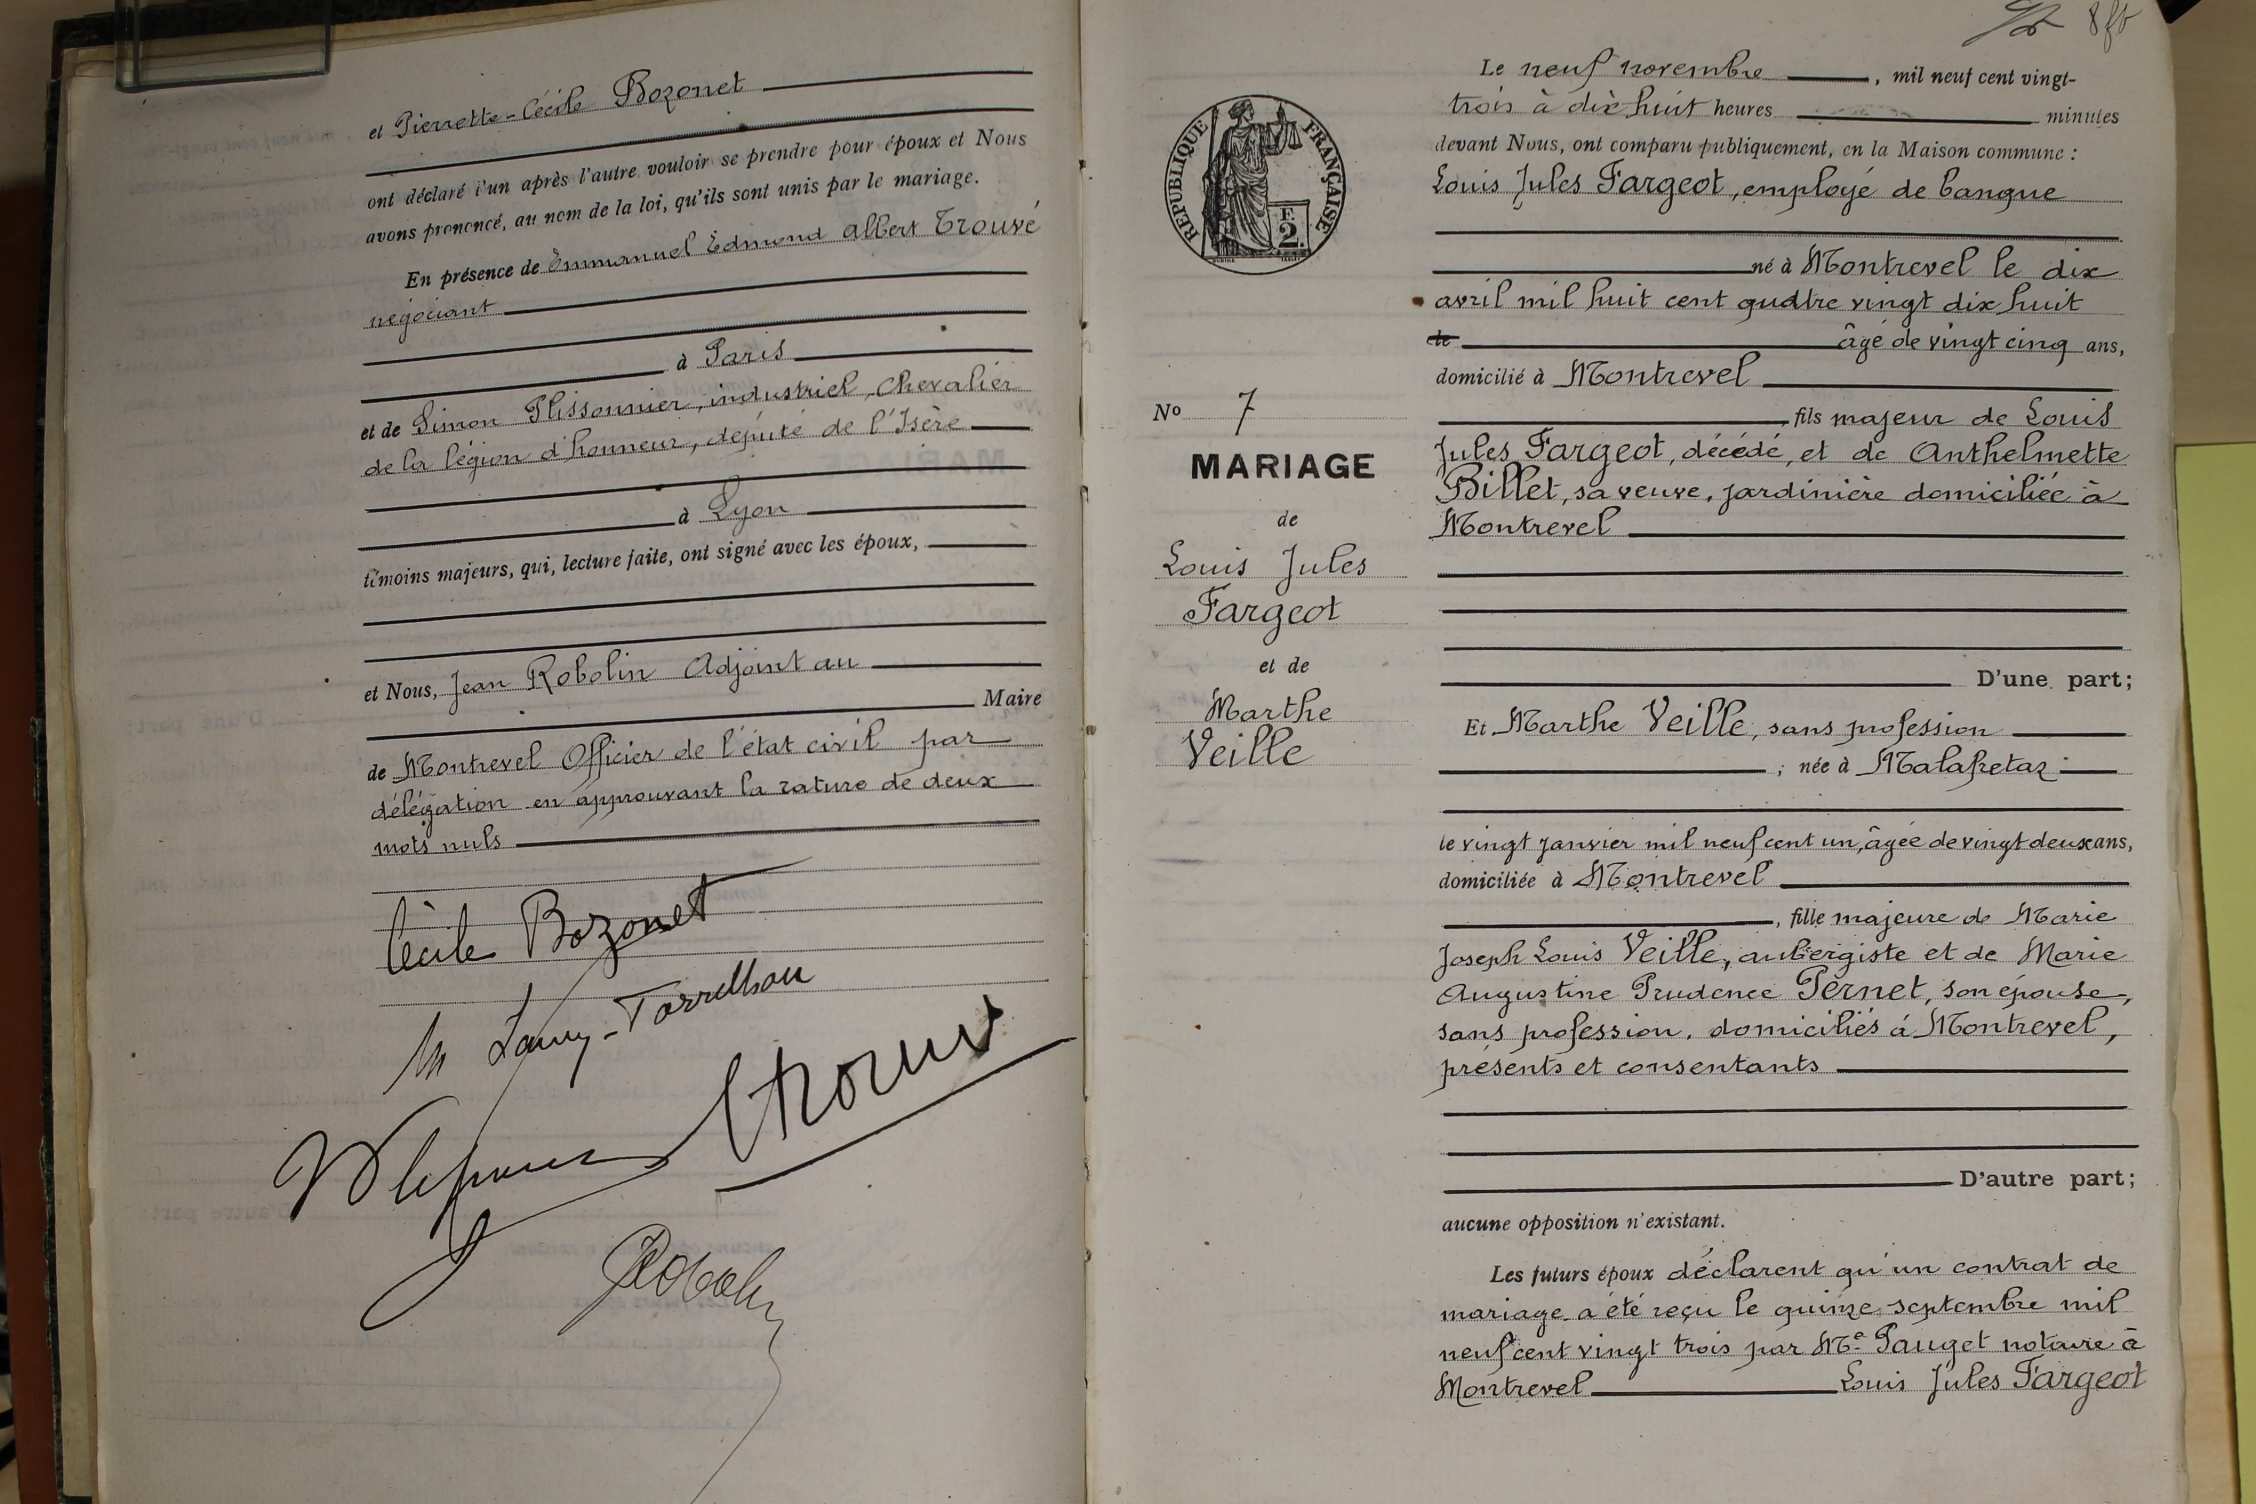 et Pierrette-Cécile Bozonet
ont déclaré l'un après l'autre vouloir se prendre pour époux et Nous
avons prononcé, au nom de la loi, qu'ils sont unis par le mariage.
En présence de Emmanuel Edmond Albert Trouvé
négociant
à Paris
et de Simon Plissonnier, industriel, chevalier
de la légion d'honneur, député de l'Isère
à Lyon
témoins majeurs, qui, lecture faite, ont signé avec les époux,
et Nous, Jean Robolin Adjoint au
Maire
de Montrevel Officier de l'état civil par
délégation en approuvant la rature de deux
mots nuls
Cécile Bozonet
Robolin
8
RÉPUBLIQUE FRANÇAISE
F.
2.
No 7
MARIAGE
de
Louis Jules
Fargeot
et de
Marthe
Veille
Le neuf novembre, mil neuf cent vingt-
trois à dix huit heures minutes
devant Nous, ont comparu publiquement, en la Maison commune :
Louis Jules Fargeot, employé de banque
né à Montrevel le dix
avril mil huit cent quatre vingt dix huit
de âgé de vingt cinq ans,
domicilié à Montrevel
, fils majeur de Louis
Jules Fargeot, décédé, et de Anthelmette
Billet, sa veuve, jardinière domiciliée à
Montrevel
D'une part;
Et Marthe Veille, sans profession
; née à Malafretaz
le vingt janvier mil neuf cent un, âgée de vingt deux ans,
domiciliée à Montrevel
, fille majeure de Marie
Joseph Louis Veille, aubergiste et de Marie
Augustine Prudence Pernet, son épouse,
sans profession, domiciliés à Montrevel,
présents et consentants
D'autre part;
aucune opposition n'existant.
Les futurs époux déclarent qu'un contrat de
mariage a été reçu le quinze septembre mil
neuf cent vingt trois par Me Pauget notaire à
Montrevel Louis Jules Fargeot